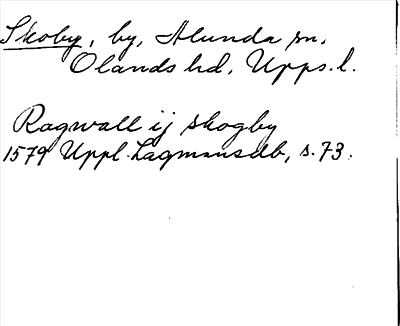 Skoby, by, Alunda sn,
Olands hd, Upps. l.
Ragwall ij skogby
1579 Uppl. Lagmansdb, s. 73.